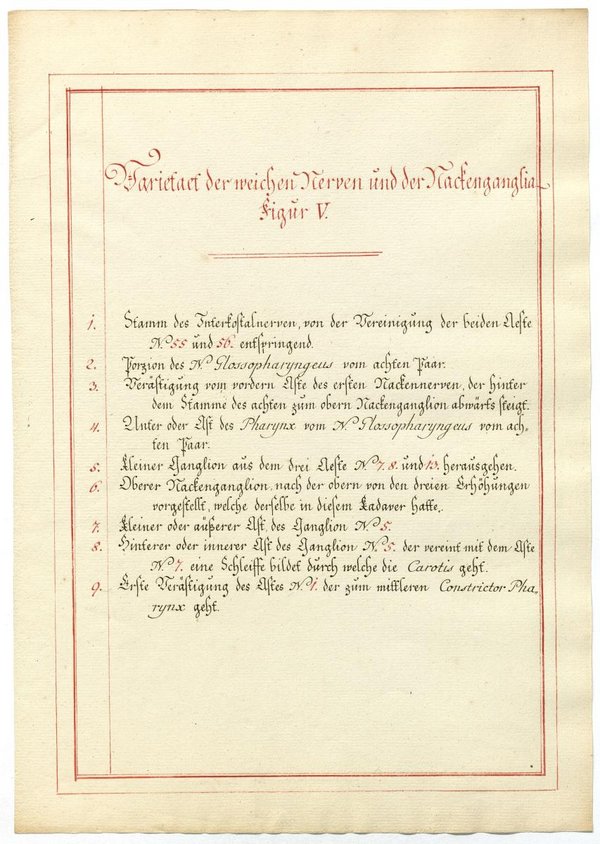 Varietaet der weichen Nerven und der Nackenganglia
Figur V.
1. Stamm des Interkostalnerven, von der Vereinigung der beiden Aeste
No 55 und 56. entspringend.
2. Porzion des N. Glossopharyngeus vom achten Paar.
3. Verästigung vom vordern Aste des ersten Nackennerven, der hinter
dem Stamme des achten zum obern Nackenganglion abwärts steigt.
4. Unter oder Ast des Pharynx vom N. Glossopharyngeus vom ach,
ten Paar.
5. Kleiner Ganglion aus dem drei Aeste No 7, 8. und 13. herausgehen.
6. Oberer Nackenganglion, nach der obern von den dreien Erhöhungen
vorgestellt, welche derselbe in diesem Kadaver hatte.
7. Kleiner oder äußerer Ast, des Ganglion No 5.
8. Hinterer oder innerer Ast des Ganglion No 5. der vereint mit dem Aste
No 7. eine Schleiffe bildet durch welche die Carotis geht.
9. Erste Verästigung des Astes No 1. der zum mittleren Constrictor Pha,
rynx geht.